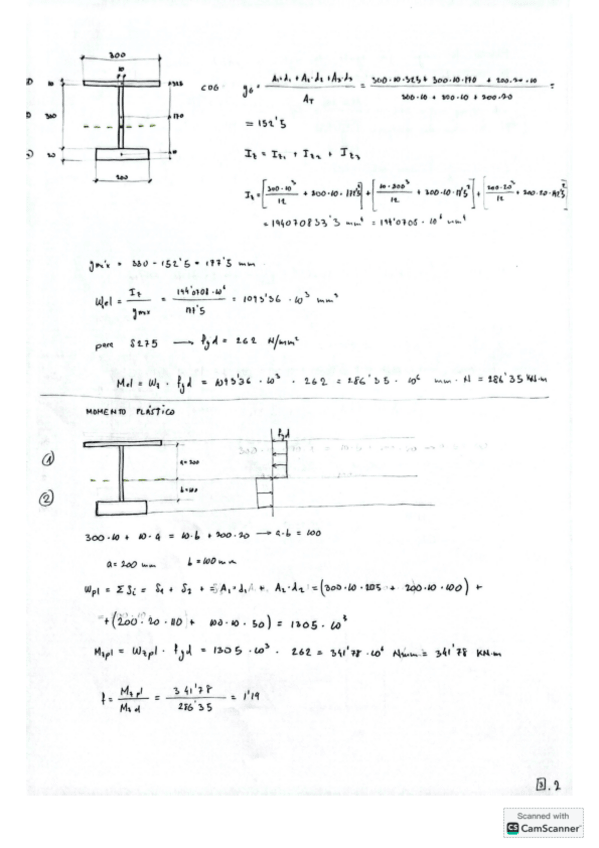 300
10
10
325
COG
yG = A1·d1 + A2·d2 + A3·d3 / AT = 300·10·325 + 300·10·170 + 200·20·10 / 300·10 + 300·10 + 200·20 =
300
170
= 152'5
20
200
Iz = Iz1 + Iz2 + Iz3
Iz = [300·10³/12 + 300·10·172'5²] + [10·300³/12 + 300·10·17'5²] + [200·20³/12 + 200·20·142'5²]
= 194070833'3 mm⁴ = 194'0708·10⁶ mm⁴
ymáx = 330 - 152'5 = 177'5 mm
Wel = Iz/ymax = 194'0708·10⁶/177'5 = 1093'36·10³ mm³
para S275 → fyd = 262 N/mm²
Mel = Wz · fyd = 1093'36·10³ · 262 = 286'35·10⁶ mm·N = 286'35 KN·m
MOMENTO PLÁSTICO
fyd
1
a=200
2
b=100
300·10 + 10·a = 10·b + 200·20 → a-b = 100
a = 200 mm b = 100 mm
Wpl = ΣSi = S1 + S2 + = A1·d1 + A2·d2 = (300·10·205 + 200·10·100) +
+ (200·20·110 + 100·10·50) = 1305·10³
Mzpl = Wzpl · fyd = 1305·10³ · 262 = 341'78·10⁶ N·mm = 341'78 KN·m
f = Mz pl / Mz el = 341'78 / 286'35 = 1'19
3.2
Scanned with
CS CamScanner